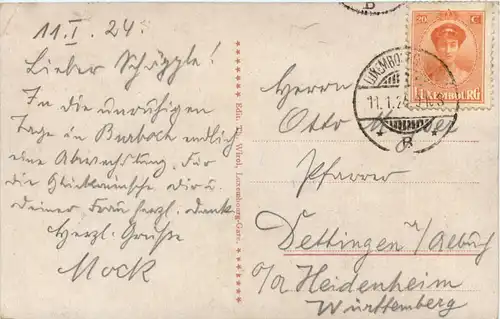 11.I.24.
Lieber Schäpple!
In die unruhigen
Tage in Burbach endlich
eine Abwechslung. Für
die Glückwünsche, dir u.
deiner Frau herzl. Dank
Herzl. Grüsse
Mock
Edit. Th. Wirol, Luxembourg-Gare.
20 C
LUXEMBOURG
LUXEMBO
11.1.24
B
B
Herrn
Otto
Pfarrer
Dettingen a/Albuch
O/A Heidenheim
Württemberg